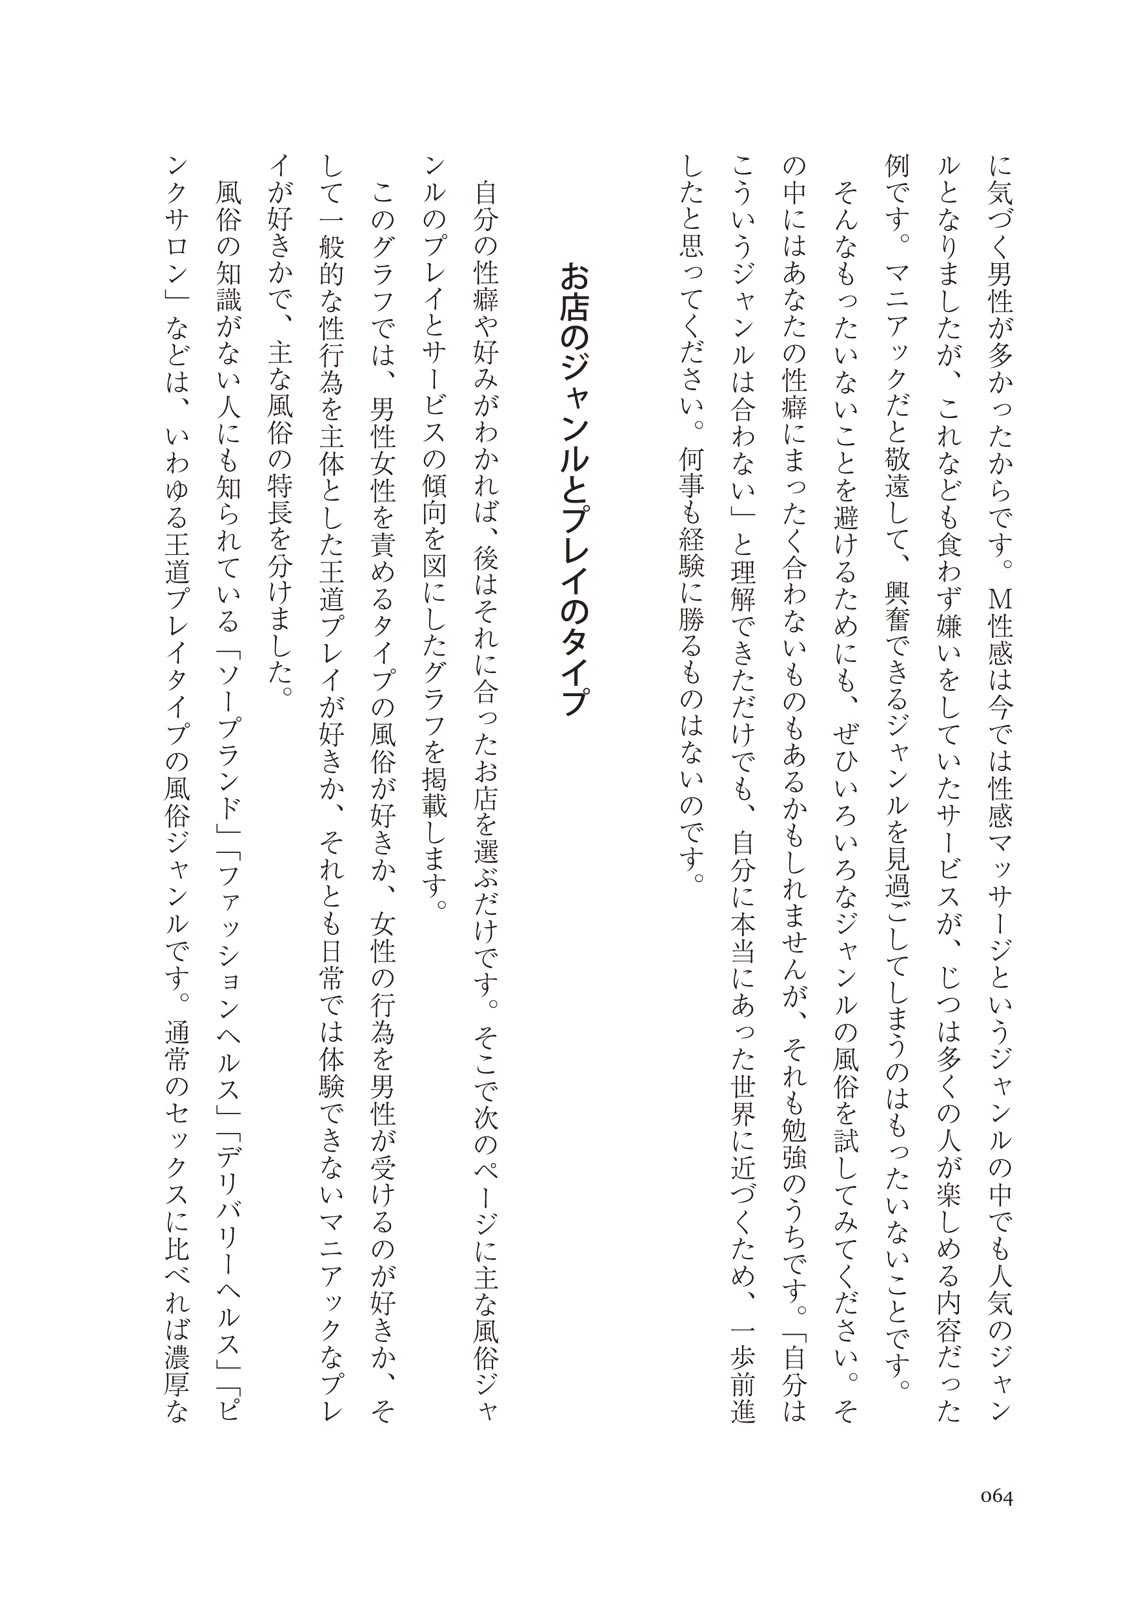 に気づく男性が多かったからです。Ｍ性感は今では性感マッサージというジャンルの中でも人気のジャン
ルとなりましたが、これなども食わず嫌いをしていたサービスが、じつは多くの人が楽しめる内容だった
例です。マニアックだと敬遠して、興奮できるジャンルを見過ごしてしまうのはもったいないことです。
そんなもったいないことを避けるためにも、ぜひいろいろなジャンルの風俗を試してみてください。そ
の中にはあなたの性癖にまったく合わないものもあるかもしれませんが、それも勉強のうちです。「自分は
こういうジャンルは合わない」と理解できただけでも、自分に本当にあった世界に近づくため、一歩前進
したと思ってください。何事も経験に勝るものはないのです。
お店のジャンルとプレイのタイプ
自分の性癖や好みがわかれば、後はそれに合ったお店を選ぶだけです。そこで次のページに主な風俗ジャ
ンルのプレイとサービスの傾向を図にしたグラフを掲載します。
このグラフでは、男性女性を責めるタイプの風俗が好きか、女性の行為を男性が受けるのが好きか、そ
して一般的な性行為を主体とした王道プレイが好きか、それとも日常では体験できないマニアックなプレ
イが好きかで、主な風俗の特長を分けました。
風俗の知識がない人にも知られている「ソープランド」「ファッションヘルス」「デリバリーヘルス」「ピ
ンクサロン」などは、いわゆる王道プレイタイプの風俗ジャンルです。通常のセックスに比べれば濃厚な
064